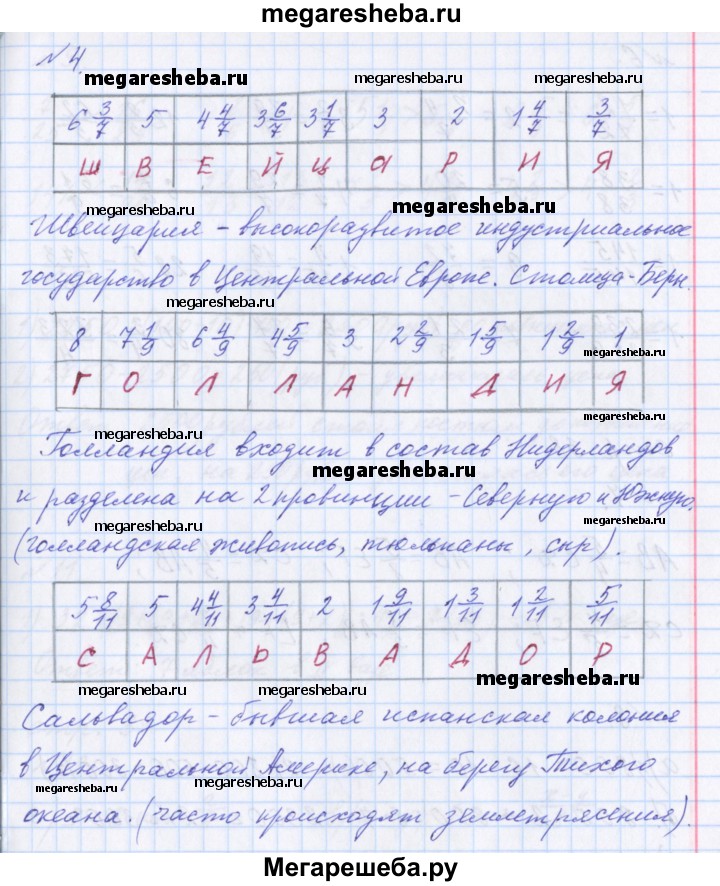 megaresheba.ru
№4.
megaresheba.ru megaresheba.ru
6 3/7 5 4 4/7 3 6/7 3 1/7 3 2 1 4/7 3/7
Ш В Е Й Ц А Р И Я
megaresheba.ru megaresheba.ru
Швейцария – высокоразвитое индустриальное
государство в Центральной Европе. Столица - Берн.
megaresheba.ru
8 7 1/9 6 4/9 4 5/9 3 2 2/9 1 5/9 1 2/9 1
megaresheba.ru
Г О Л Л А Н Д И Я
megaresheba.ru megaresheba.ru
Голландия входит в состав Нидерландов
megaresheba.ru
и разделена на 2 провинции – Северную и Южную.
megaresheba.ru megaresheba.ru
(голландская живопись, тюльпаны, сыр).
5 8/11 5 4 4/11 3 4/11 2 1 9/11 1 3/11 1 2/11 5/11
С А Л Ь В А Д О Р
megaresheba.ru megaresheba.ru megaresheba.ru
Сальвадор – бывшая испанская колония
в Центральной Америке, на берегу Тихого
megaresheba.ru megaresheba.ru
океана. (часто происходят землетрясения).
Мегарешеба.ру